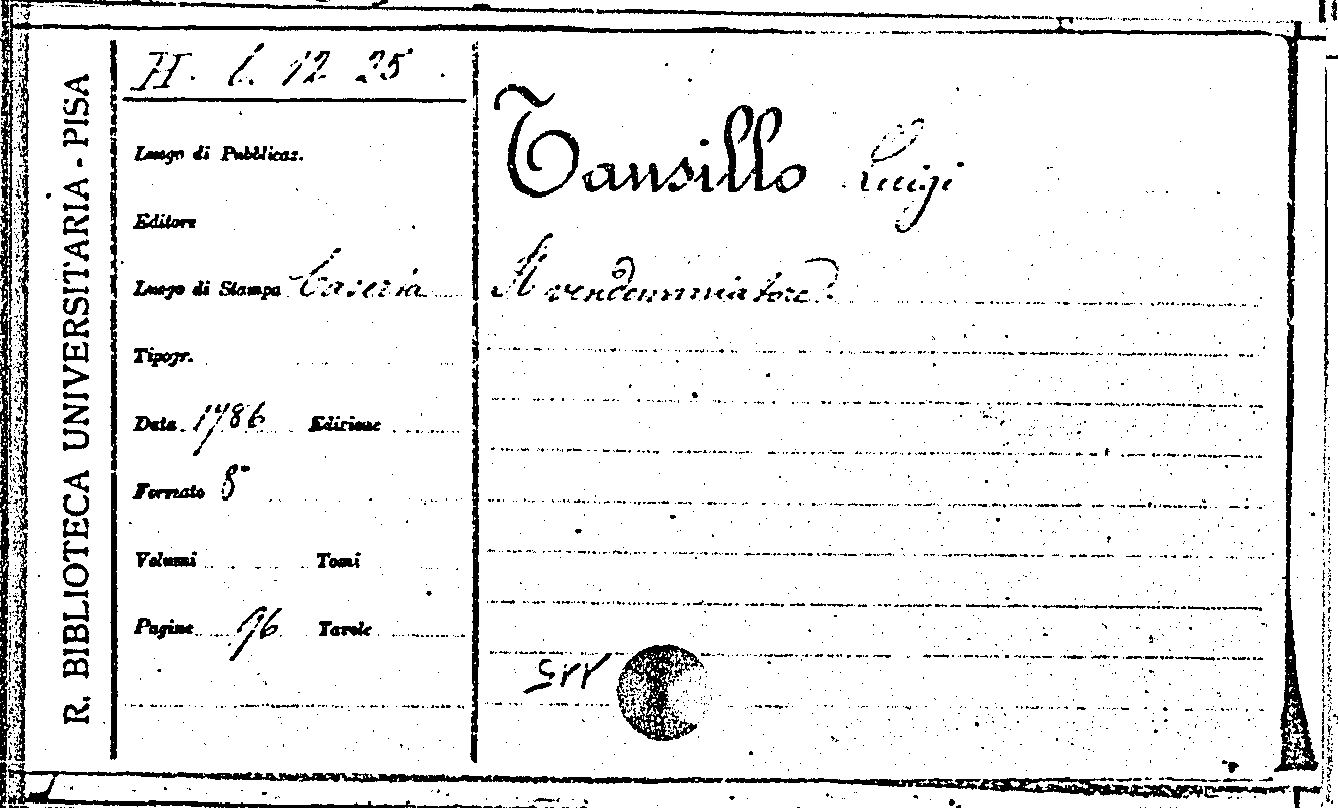 R. BIBLIOTECA UNIVERSITARIA - PISA
H. l. 12 25.
Luogo di Pubblicaz.
Editore
Luogo di Stampa Caseria
Tipogr.
Data 1786 Edizione
Formato 8°
Volumi Tomi
Pagine 96 Tavole
Tansillo Luigi
Il vendemmiatore.